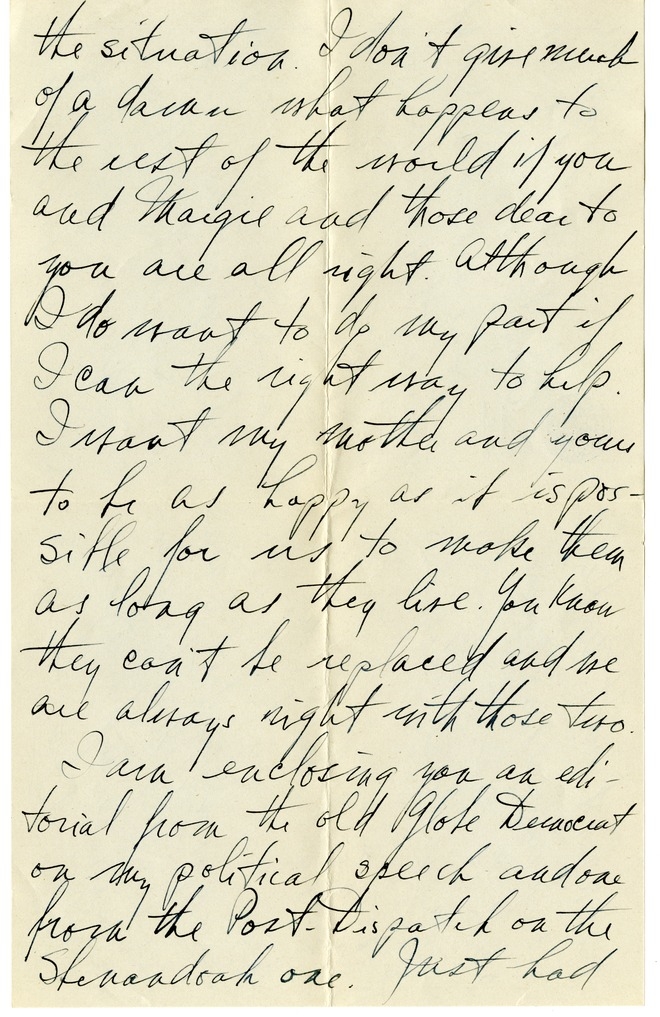 the situation. I don't give much
of a damn what happens to
the rest of the world if you
and Margie and those dear to
you are all right. Although
I do want to do my part if
I can the right way to help.
I want my mother and yours
to be as happy as it is pos-
sible for us to make them
as long as they live. You know
they can't be replaced and we
are always right with those two.
I am enclosing you an edi-
torial from the old Globe Democrat
on my political speech and one
from the Post-Dispatch on the
Shenandoah one. Just had